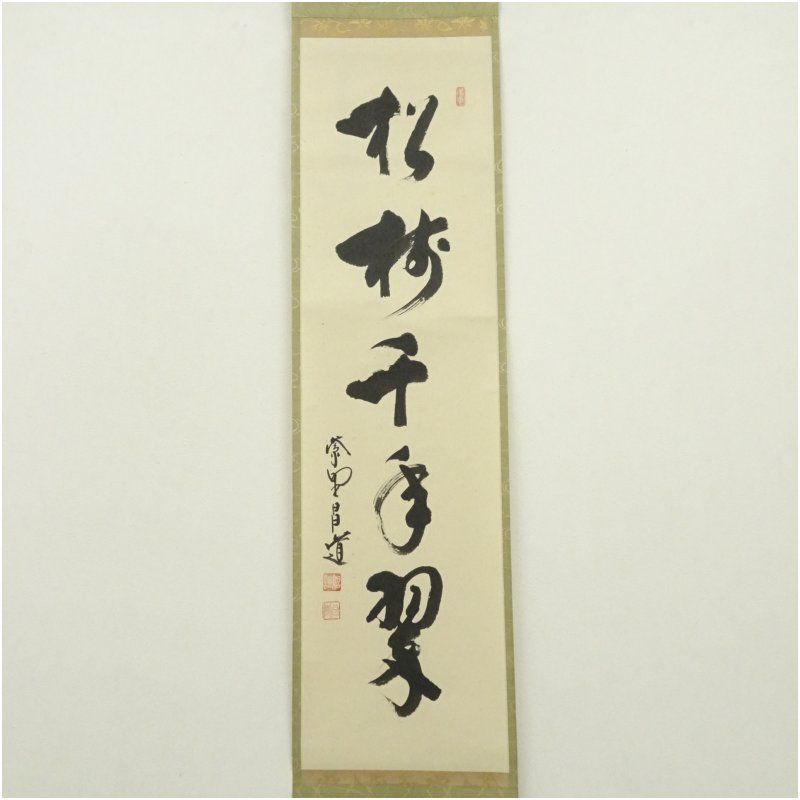 松樹千年翠
紫野昌道